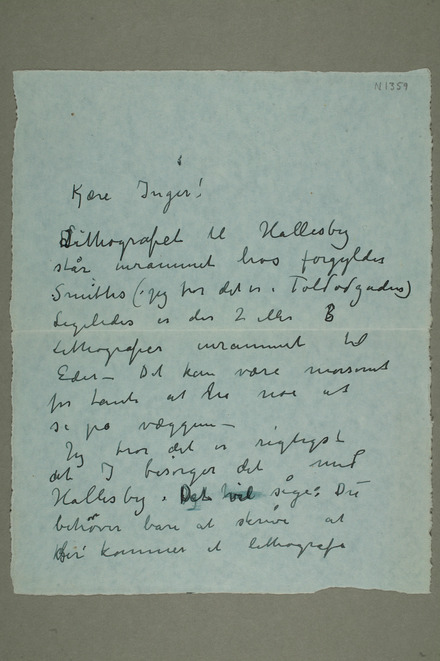 N 1359
Kjære Inger!
Lithografiet til Hallesby
står inrammet hos forgylder
Smiths (jeg tror det er i Toldbodgaden)
Ligeledes er der 2 eller 3
lithografier inrammet til
Eder – Det kan være morsomt
for tante at ha noe at
se på væggen –
Jeg tror det er rigtigst
det I besørger det med
Hallesby. Det vil sige: Du
behøver bare at skrive at
her kommer et lithografi